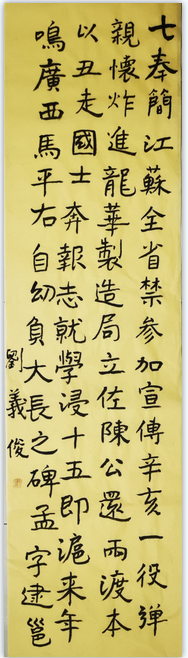 七奉簡江蘇全省禁參加宣傳辛亥一役彈
親懷炸進龍華製造局立佐陳公還兩渡本
以丑走國士奔報志就學浸十五即滬来年
鳴廣西馬平右自幼負大長之碑孟字逮邕
劉義俊